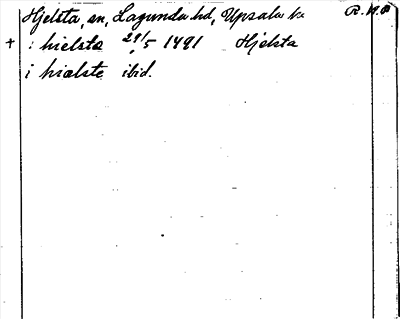 Hjelsta, sn, Lagunda hd, Upsala ln R.A.P
+ i hielsta 29/5 1491 Hjelsta
i hiælste ibid.